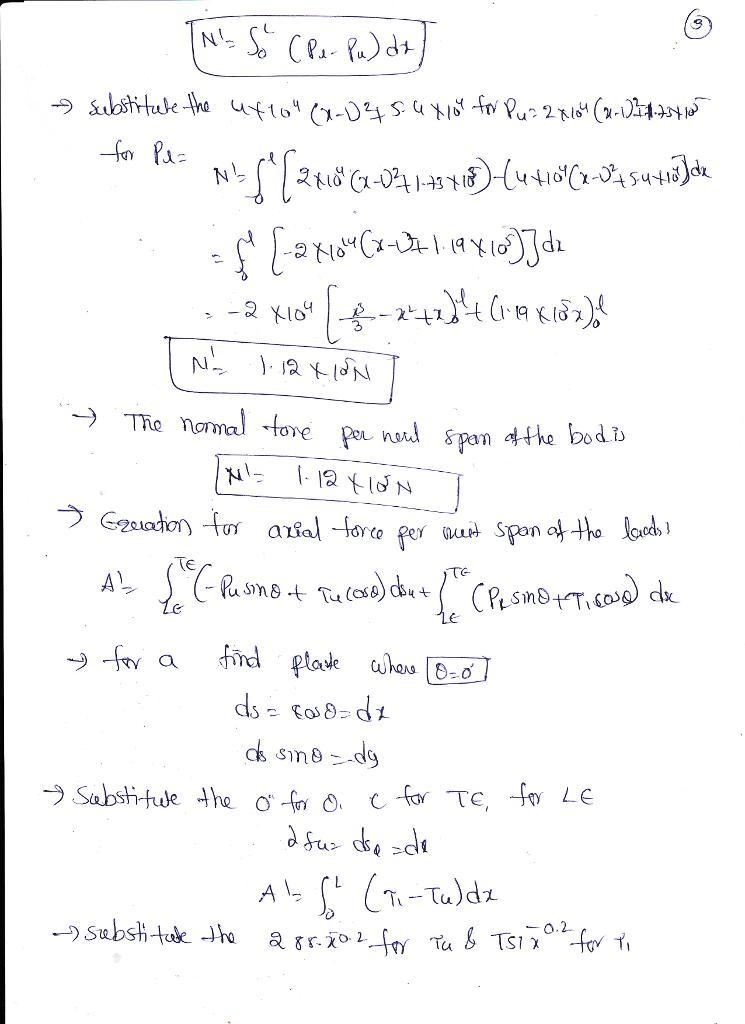 3
N' = ∫₀ᴸ (Pl - Pu) dx
→ substitute the 4×10⁴ (x-1)² + 5.4×10⁴ for Pu = 2×10⁴ (x-1)² + 1.73×10⁵
for Pl =
N' = ∫₀ˡ [2×10⁴ (x-1)² + 1.73×10⁵) - (4×10⁴ (x-1)² + 5.4×10⁴] dx
= ∫₀ˡ [-2×10⁴ (x-1)² + 1.19×10⁵)] dx
= -2×10⁴ [x³/3 - x² + x]₀ˡ + (1.19×10⁵x)₀ˡ
N' = 1.12×10⁵N
→ The normal force per span of the bod is
N' = 1.12×10⁵N
→ Equation for axial force per unit span of the
A' = ∫LE^TE (-Pu sinθ + Tu cosθ) dsu + ∫LE^TE (Pl sinθ + Tl cosθ) ds
→ for a plate where θ=0°
ds = cosθ = dx
ds sinθ = dy
→ Substitute the 0° for θ. c for TE, for LE
dsu = dsl = dx
A' = ∫₀ᴸ (Tl - Tu) dx
→ substitute the 288.x^0.2 for Tu & 731 x^-0.2 for Tl